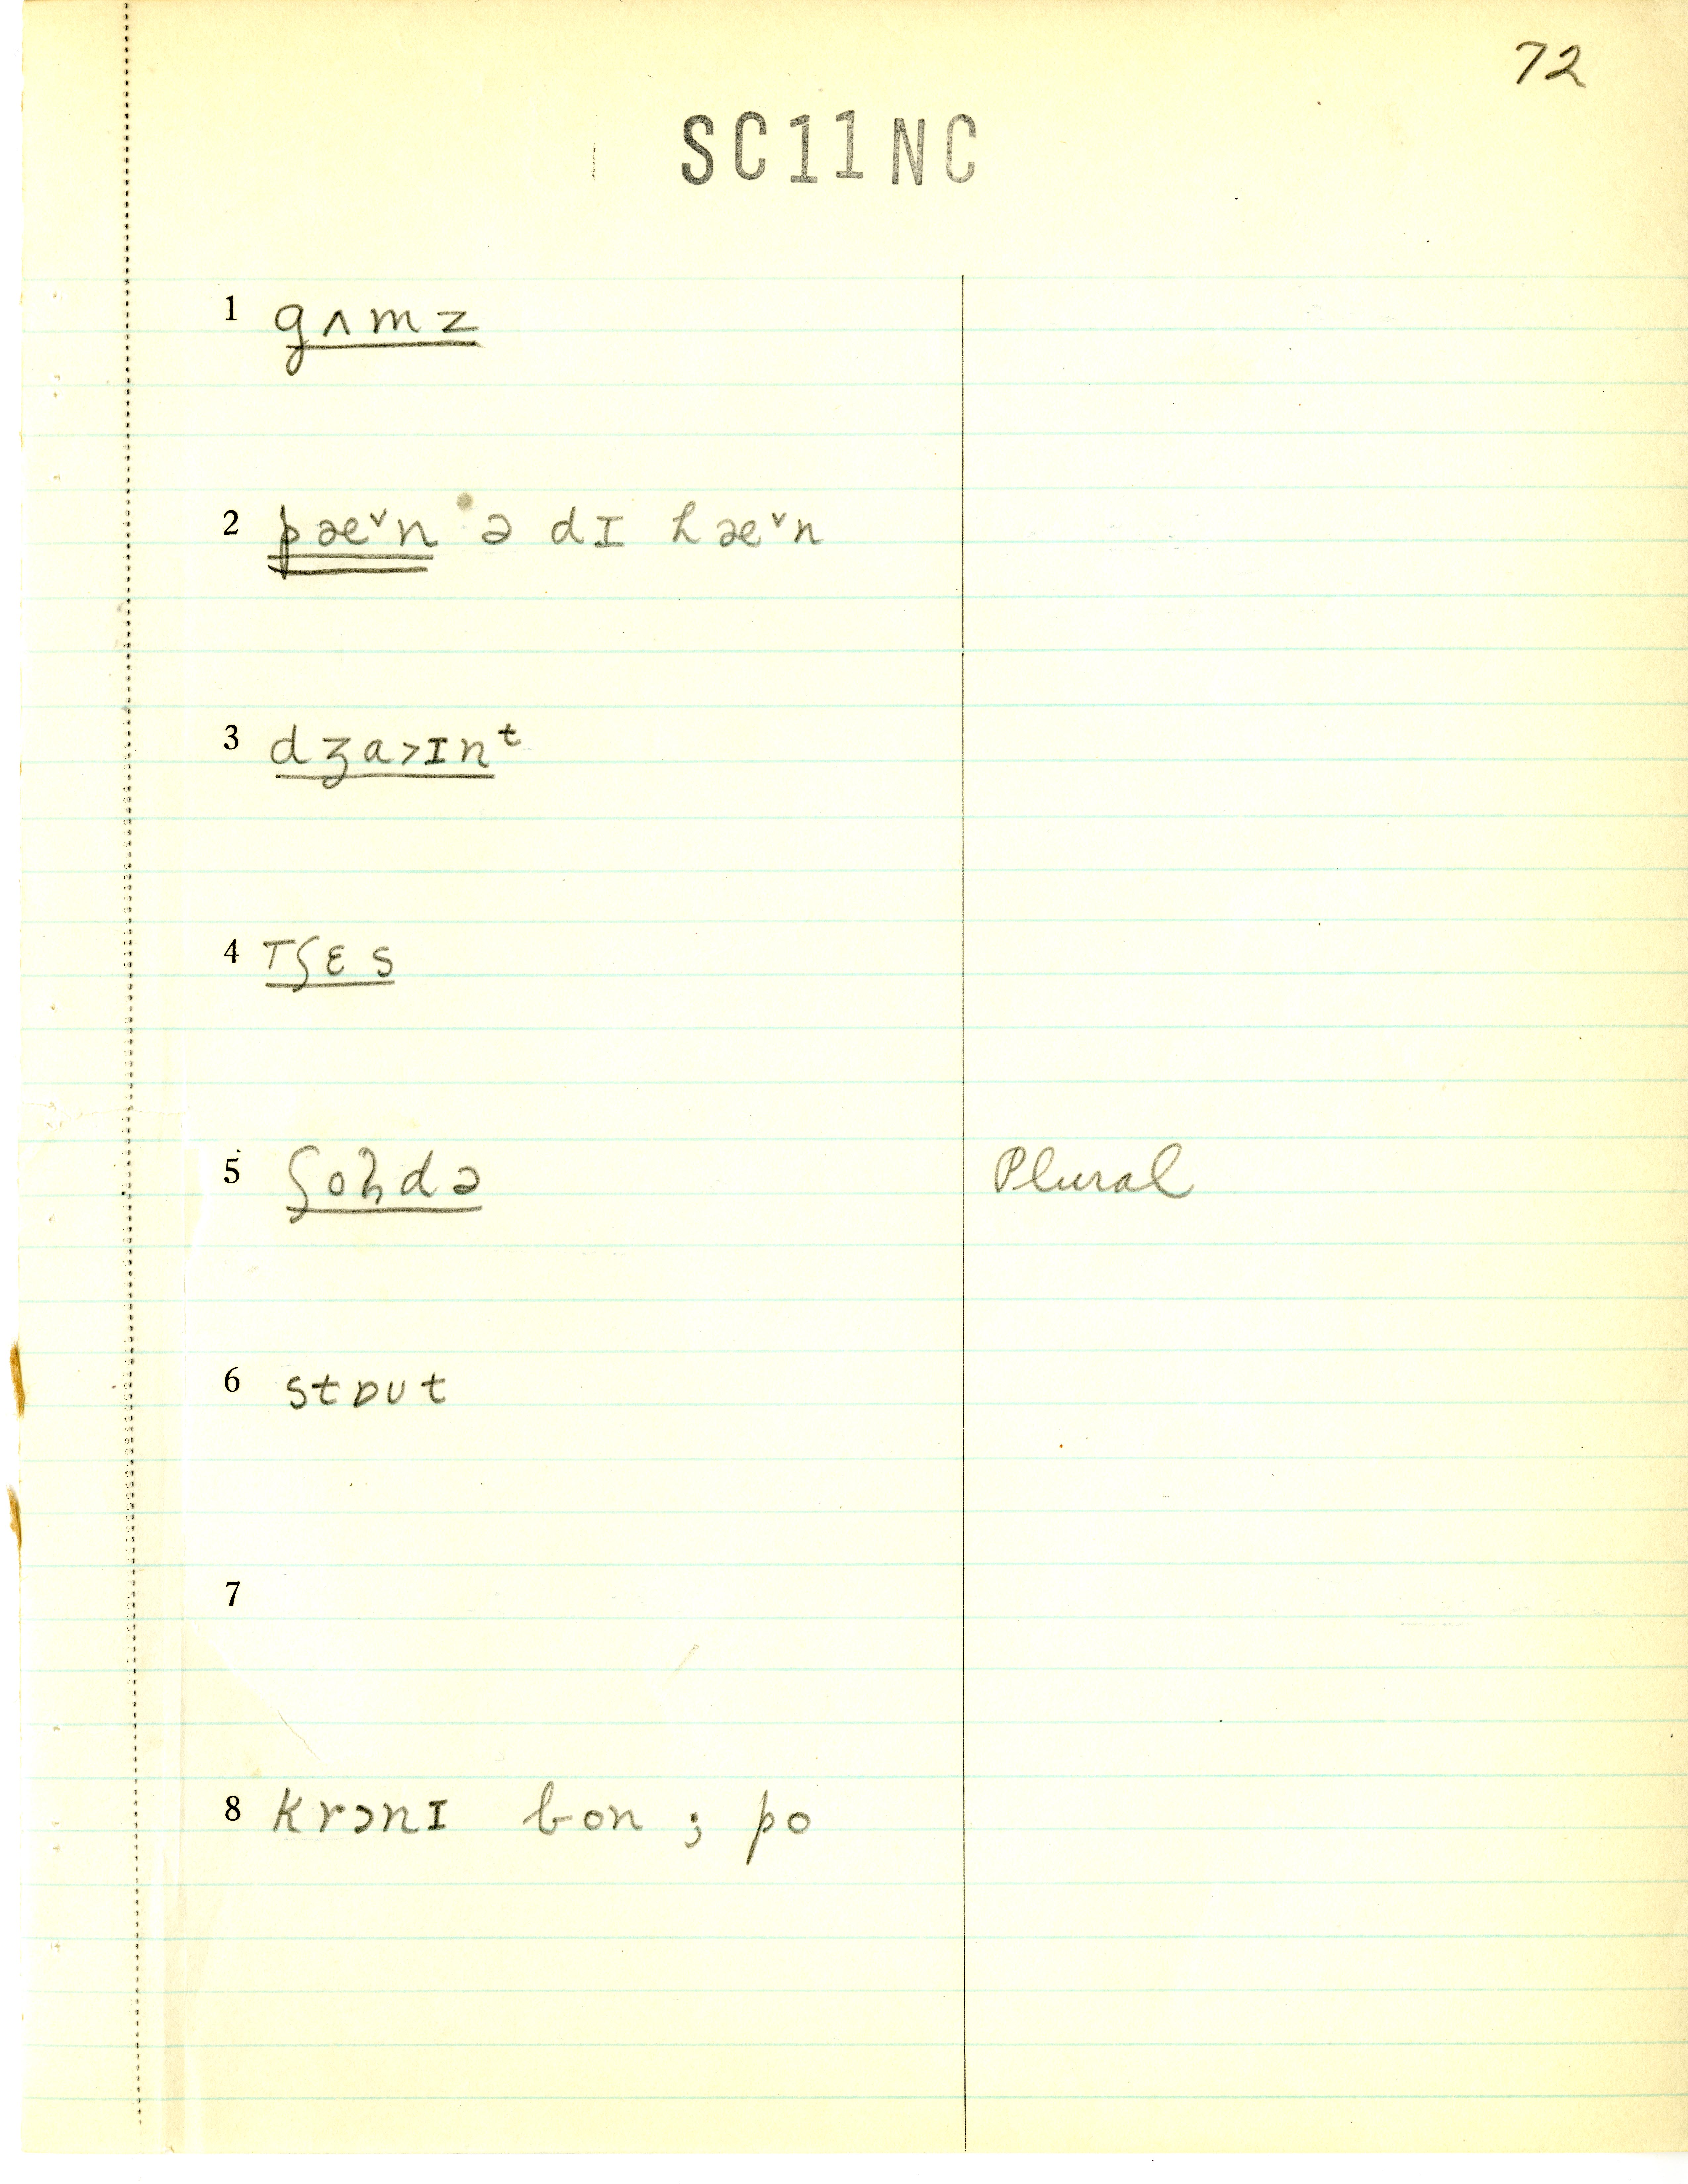 72
SC11NC
1 gʌmz
2 pæ˅n ə dɪ hæ˅n
3 dʒa>ɪnᵗ
4 Tʃɛs
5 ʃoldə Plural
6 stɒut
7
8 krɔnɪ bon ; po